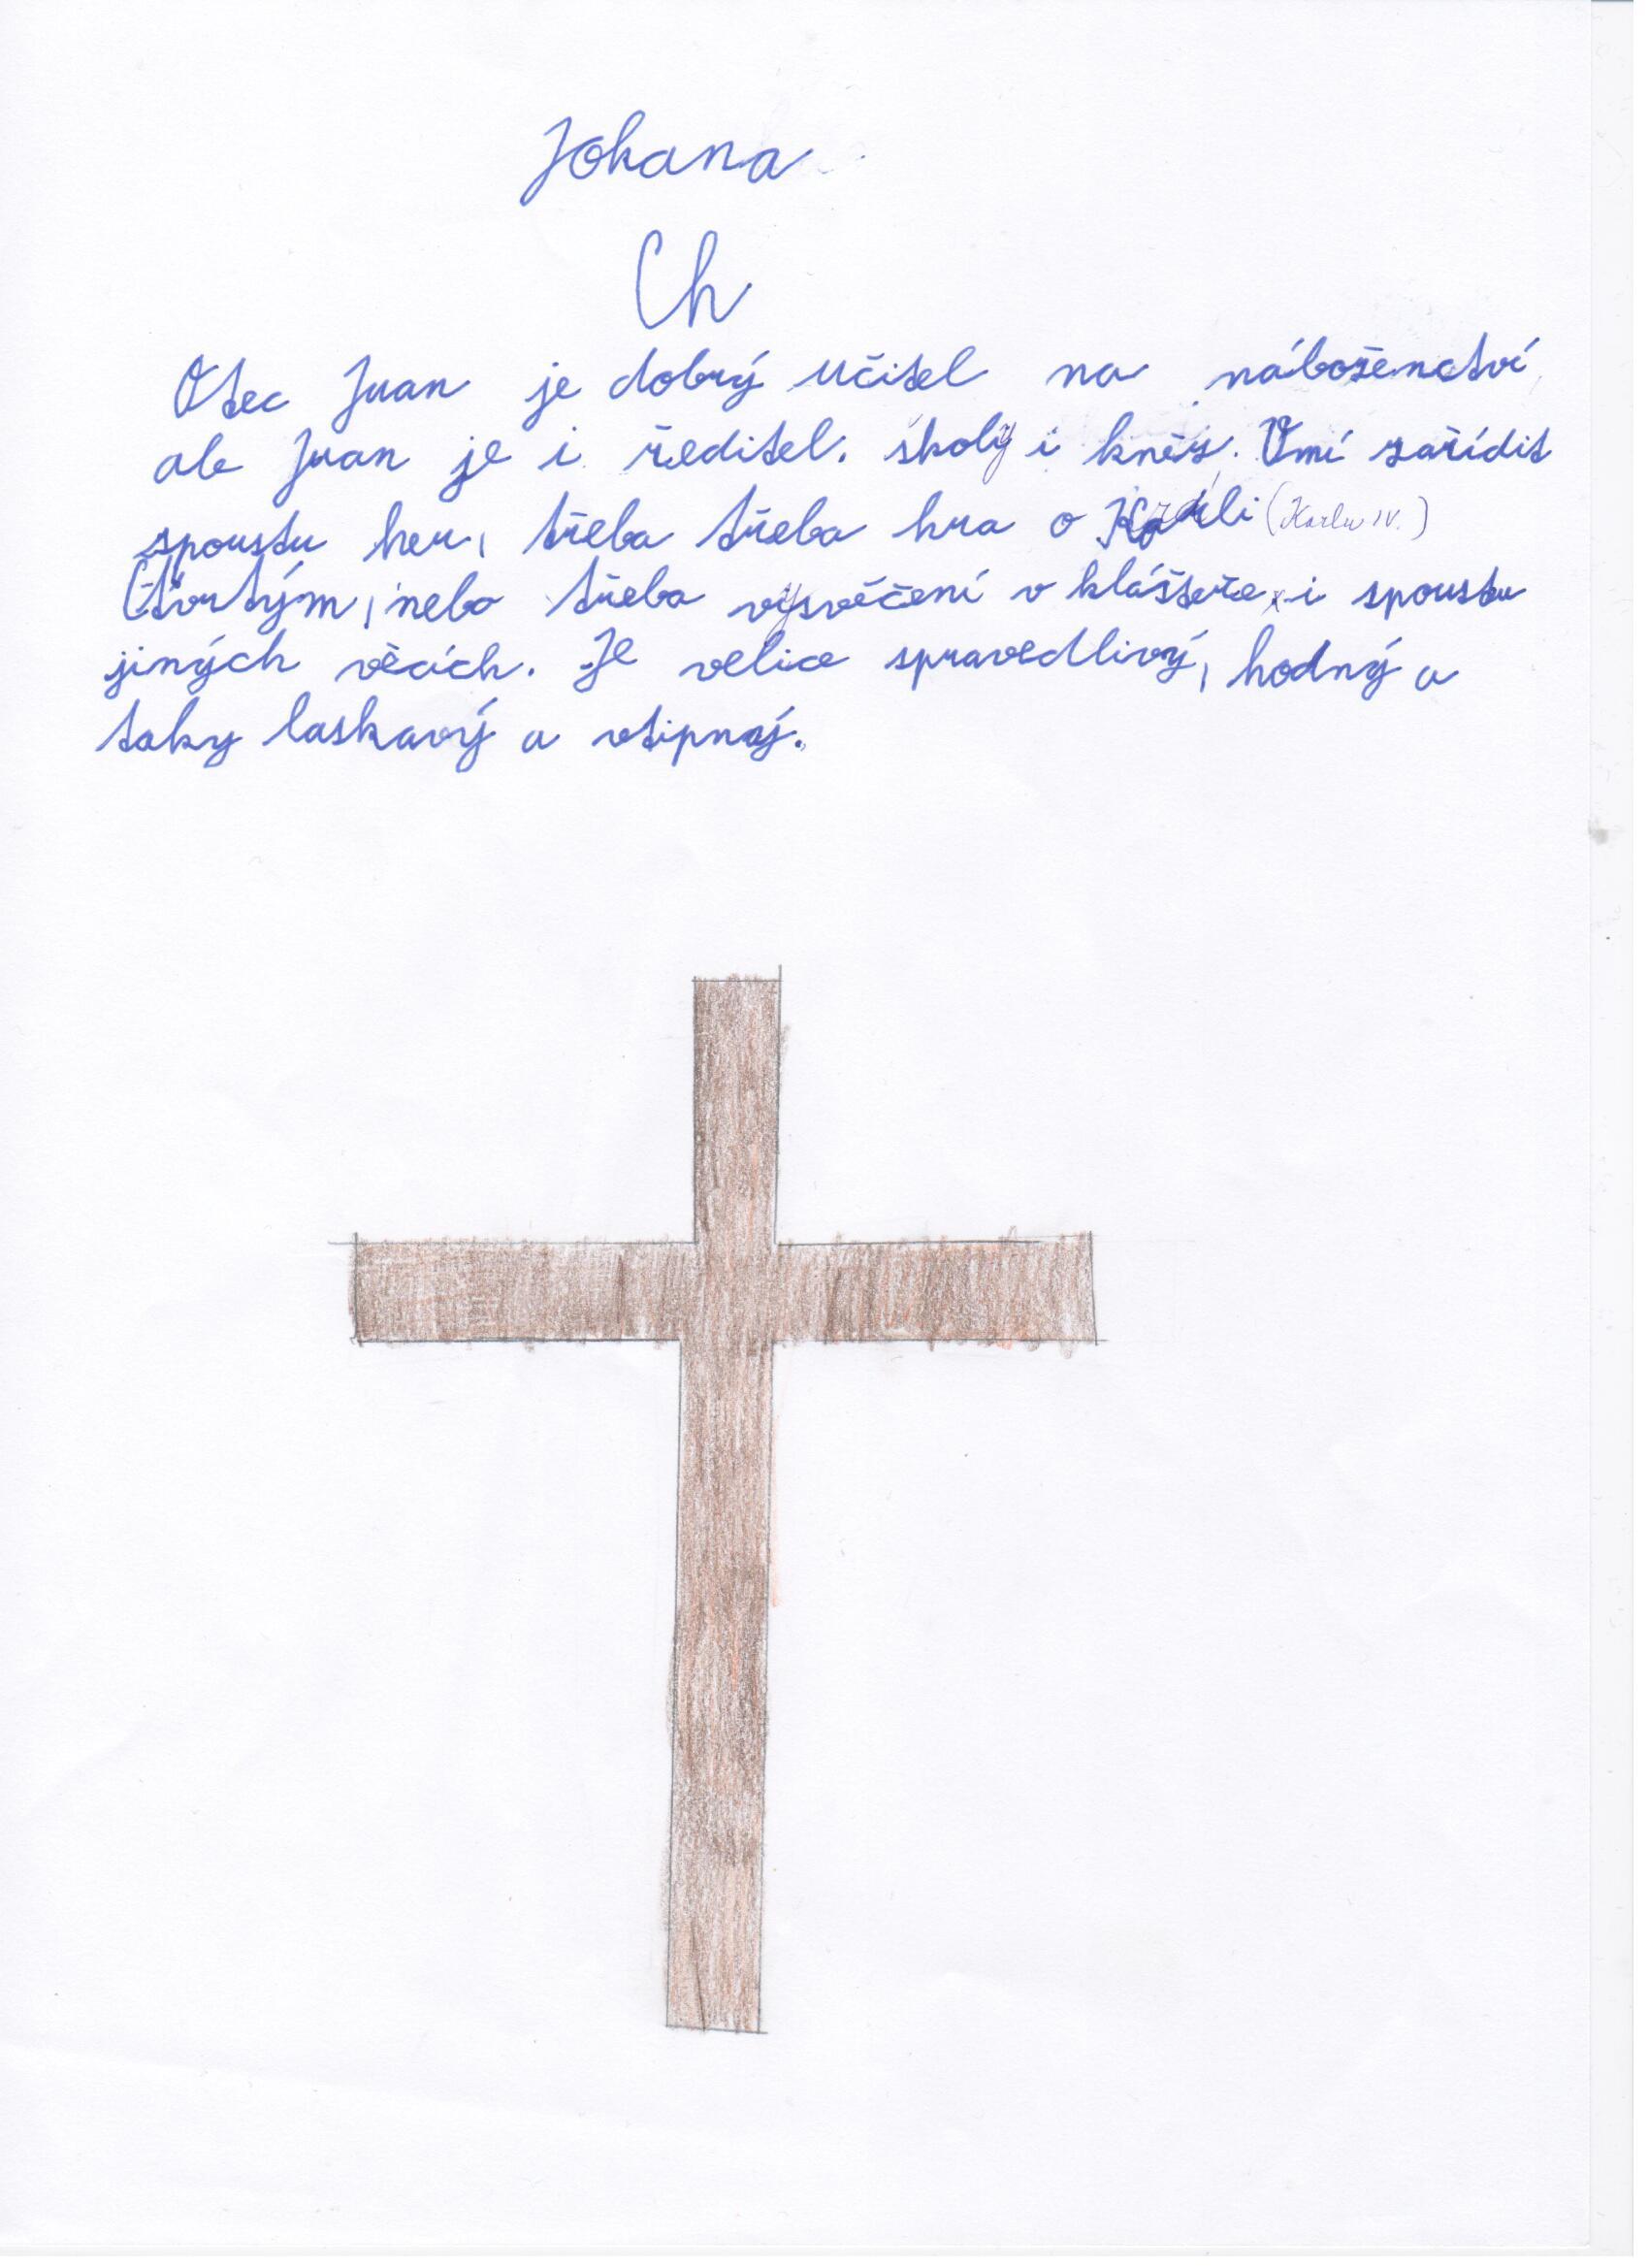 Johana
Ch
Otec Juan je dobrý učitel na náboženctví,
ale Juan je i ředitel. školy i kněz. Umí zařídit
spoustu her, třeba třeba hra o Karli (Karlu IV.)
Čtvrtým, nebo třeba vysvěčení v klášteře i spoustu
jiných věcích. Je velice spravedlivý, hodný a
taky laskavý a vtipný.